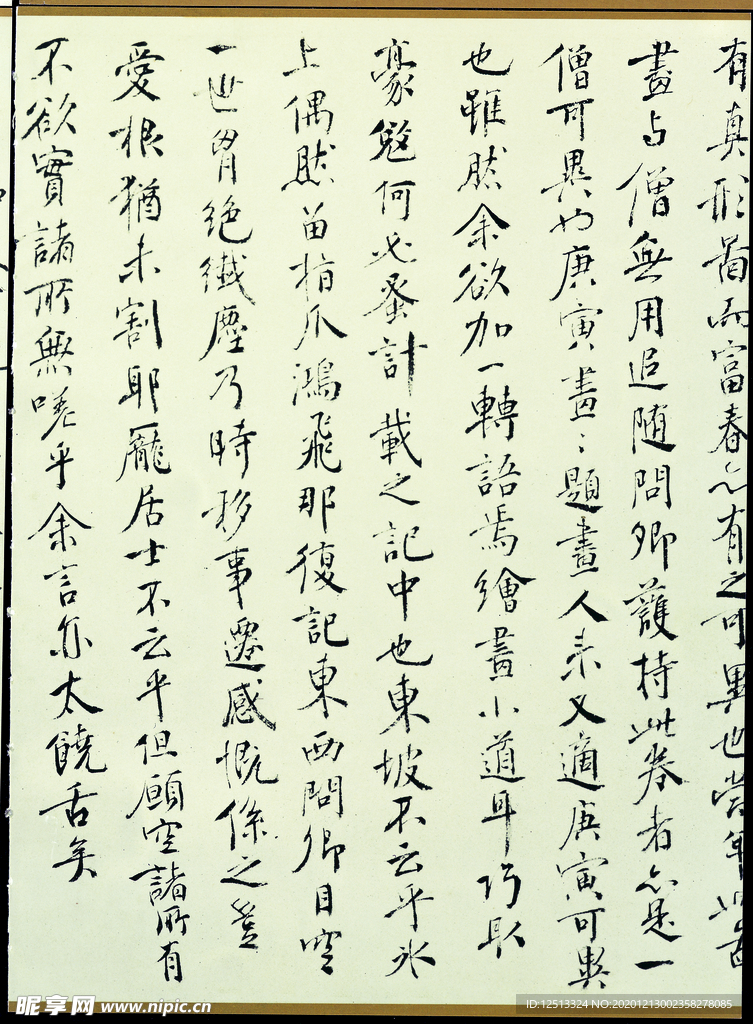 有真形啚而富春亦有之可異也當年此啚
畫与僧無用追随問卿護持此卷者亦是一
僧可異也庚寅畫:題畫人来又適庚寅可異
也雖然余欲加一轉語焉繪畫小道耳巧取
豪敚何必蚤計載之記中也東坡不云乎氷
上偶然留指爪鴻飛那復記東西問卿目空
一世胷絶纖塵乃時移事遷感慨係之豈
愛根猶未割耶龐居士不云乎但願空諸所有
不欲實諸所無嗟乎余言亦太饒舌矣
昵享网 www.nipic.cn
ID:12513324 NO:20201213002358278085